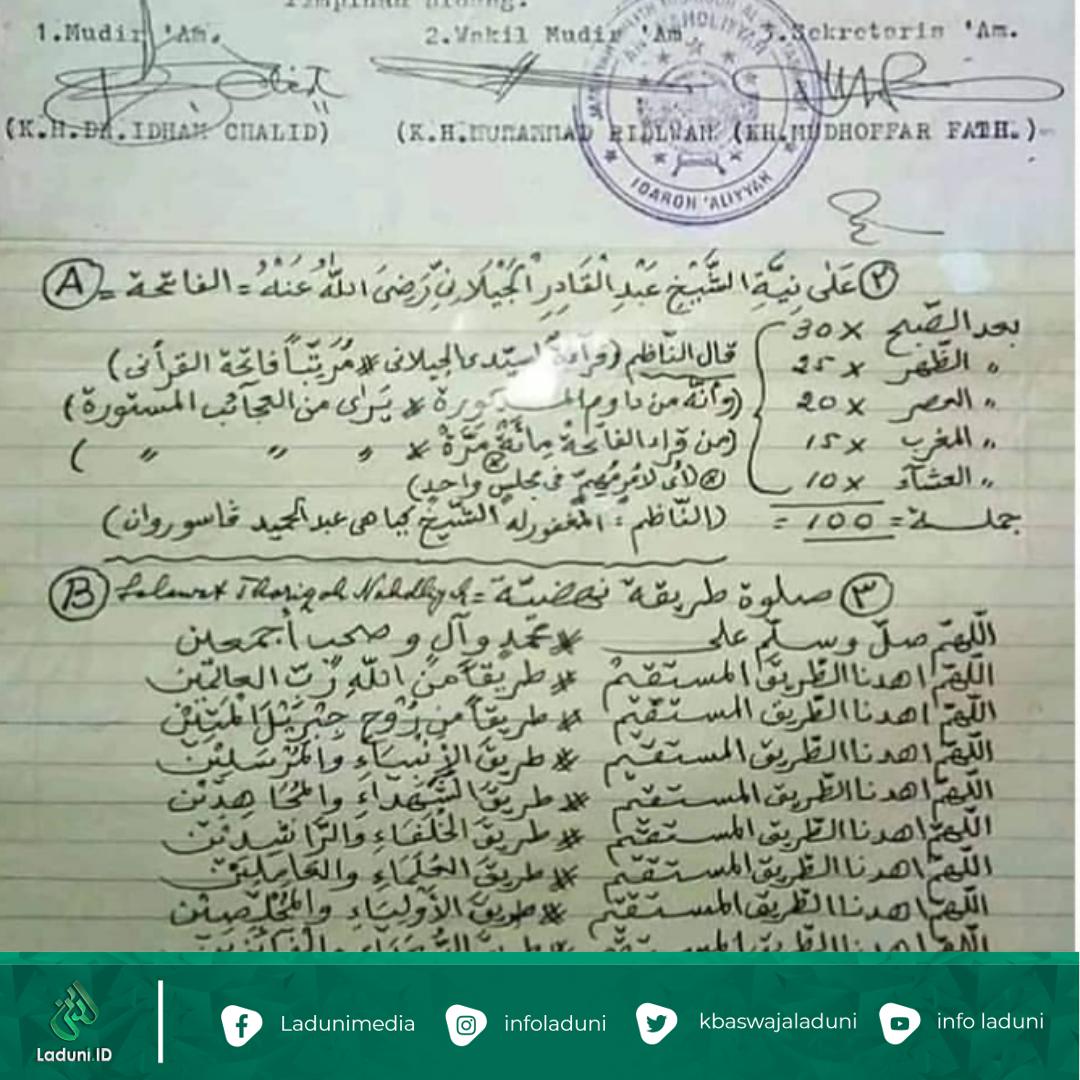 Pimpinan Sidang.
1.Mudir 'Am. 2.Wakil Mudir 'Am 3.Sekretaris 'Am.
(K.H.DR.IDHAM CHALID) (K.H.MUHAMMAD RIDLWAN (KH.MUDHOFFAR FATH.)
AN NAHDLIYYAH
IDAROH 'ALIYYAH
(A) ٢ عَلٰى نِيَّةِ الشَّيْخِ عَبْدِ الْقَادِرِ الْجَيْلَانِيِّ رَضِىَ اللّٰهُ عَنْهُ = الفاتحة =
بعد الصّبح 30 x
" الظّهر 25 x قال النّاظم (وراءة لسيّدى الجيلانى * مُرَتِّبًا فاتحة القرأنى)
" العصر 20 x (وأنّه من داوم المـ كورة * يَرٰى من العجائب المستورة)
" المغرب 15 x (من قراء الفاتحةْ مِائَةْ مَرَّةْ * " " " )
" العشآء 10 x (أى لأمر مُهِمّ فى مجلسٍ واحدٍ)
جملـة = 100 = (النّاظم : المغفورله الشّيخ كياهى عبد الحميد فاسوروان)
(B) Solawat Thoriqoh Nahdliyah = صلوة طريقة نهضيّة ٣
اللّهمّ صلّ وسلّم على * محمّد وآل وصحب أجمعين
اللّهمّ اهدنا الطّريق المستقيم * طريقاً منَ اللّهِ رَبِّ العالمين
اللّهمّ اهدنا الطّريق المستقيم * طريقاً من رُوْحِ جِبْرِيْلَ الْمَتِيْن
اللّهمّ اهدنا الطّريق المستقيم * طريقَ الأنبياءِ والمُرْسَلِيْن
اللّهمّ اهدنا الطّريق المستقيم * طريقَ الشُّهَداءِ والمُجَاهِدِيْن
اللّهمّ اهدنا الطّريق المستقيم * طريقَ الخُلَفَاءِ وَالرَّاشِدِيْن
اللّهمّ اهدنا الطّريق المستقيم * طريقَ العُلَمَاءِ والعَامِلِيْن
اللّهمّ اهدنا الطّريق المستقيم * طريقَ الأَوْلِيَاءِ والمُخْلِصِيْن
اللّهمّ اهدنا الطّريق المستقيم
Laduni.ID Ladunimedia infoladuni kbaswajaladuni info laduni